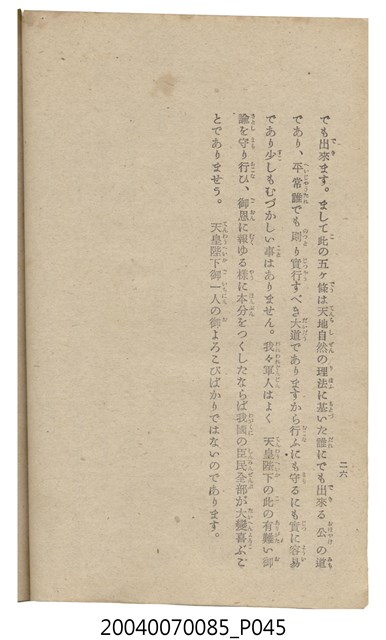 二六
でも出來ます。まして此の五ヶ條は天地自然の理法に基いた誰にでも出來る 公の道
であり、平常誰でも 則り實行すべき大道でありますから行ふにも守るにも實に容易
であり少しもむづかしい事はありません。我々軍人はよく 天皇陛下の此の有難い御
諭を守り行ひ、御恩に報ゆる樣に本分をつくしたならば我國の臣民全部が大變喜ぶこ
とでありませう。 天皇陛下御一人の御よろこびばかりではないのであります。
20040070085_P045